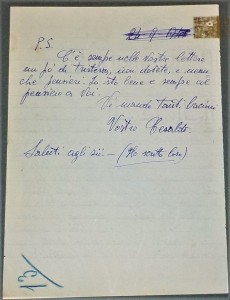 P.S.
C'è sempre nelle vostre lettere
un pò di tristezza, non dovete, e meno
che pensieri. Io sto bene e sempre col
pensiero a Voi.
Vi mando tanti bacini
Vostro
Saluti agli zii. — (Ho scritto loro)